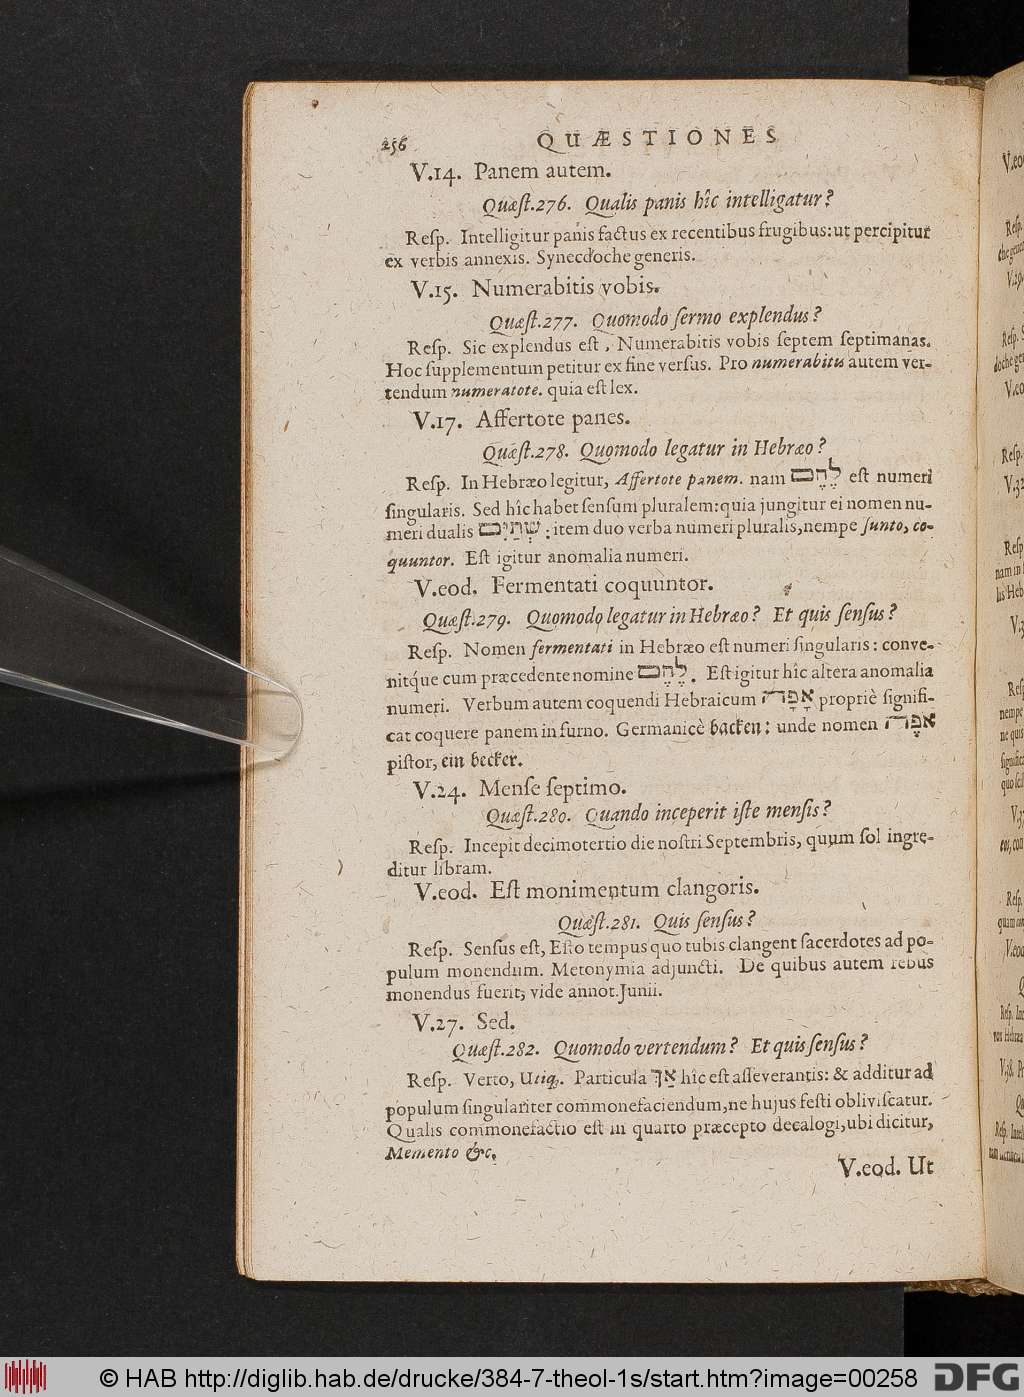 256 QUÆSTIONES
V.14. Panem autem.
Quæſt.276. Qualis panis hîc intelligatur?
Reſp. Intelligitur panis factus ex recentibus frugibus: ut percipitur
ex verbis annexis. Synecdoche generis.
V.15. Numerabitis vobis.
Quæſt.277. Quomodo ſermo explendus?
Reſp. Sic explendus eſt, Numerabitis vobis ſeptem ſeptimanas.
Hoc ſupplementum petitur ex fine verſus. Pro numerabitis autem ver-
tendum numeratote. quia eſt lex.
V.17. Affertote panes.
Quæſt.278. Quomodo legatur in Hebræo?
Reſp. In Hebræo legitur, Affertote panem. nam לֶהֶם eſt numeri
ſingularis. Sed hîc habet ſenſum pluralem: quia jungitur ei nomen nu-
meri dualis שְׁתַּיִם: item duo verba numeri pluralis, nempe ſunto, co-
quuntor. Eſt igitur anomalia numeri.
V.eod. Fermentati coquuntor.
Quæſt.279. Quomodo legatur in Hebræo? Et quis ſenſus?
Reſp. Nomen fermentati in Hebræo eſt numeri ſingularis: conve-
nitq́ue cum præcedente nomine לֶהֶם. Eſt igitur hîc altera anomalia
numeri. Verbum autem coquendi Hebraicum אָפָה propriè ſignifi-
cat coquere panem in furno. Germanicè backen: unde nomen אֹפֶה
piſtor, ein becker.
V.24. Menſe ſeptimo.
Quæſt.280. Quando inceperit iſte menſis?
Reſp. Incepit decimotertio die noſtri Septembris, quum ſol ingre-
ditur libram.
V.eod. Eſt monimentum clangoris.
Quæſt.281. Quis ſenſus?
Reſp. Senſus eſt, Eſto tempus quo tubis clangent ſacerdotes ad po-
pulum monendum. Metonymia adjuncti. De quibus autem rebus
monendus fuerit, vide annot. Junii.
V.27. Sed.
Quæſt.282. Quomodo vertendum? Et quis ſenſus?
Reſp. Verto, Utiq;. Particula אַךְ hîc eſt aſſeverantis: & additur ad
populum ſingulariter commonefaciendum, ne hujus feſti obliviſcatur.
Qualis commonefactio eſt in quarto præcepto decalogi, ubi dicitur,
Memento &c.
V.eod. Ut
© HAB http://diglib.hab.de/drucke/384-7-theol-1s/start.htm?image=00258
DFG